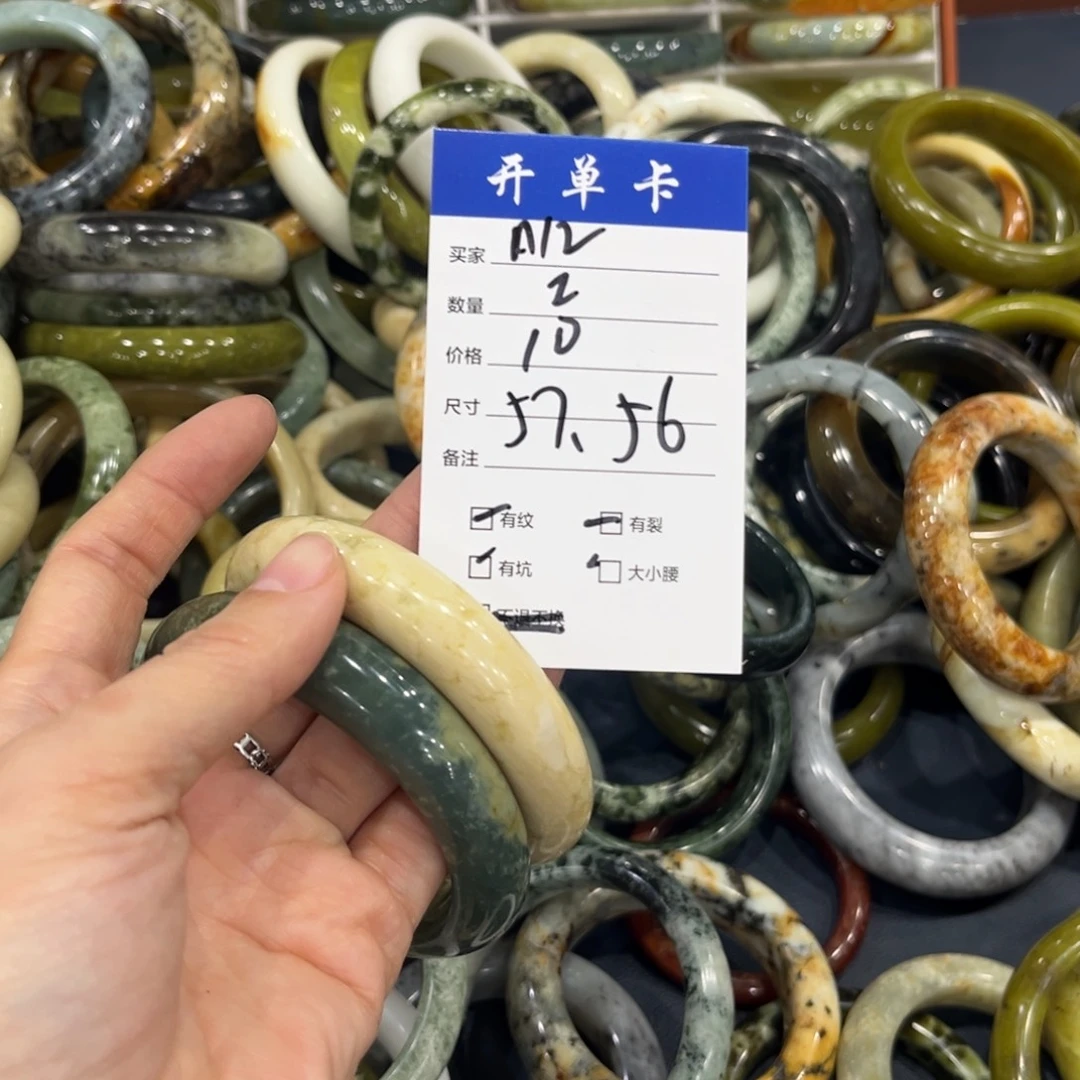 开单卡
买家 A12
数量 2
价格 10
尺寸 57、56
备注
有纹 有裂
有坑 大小腰
不退不换